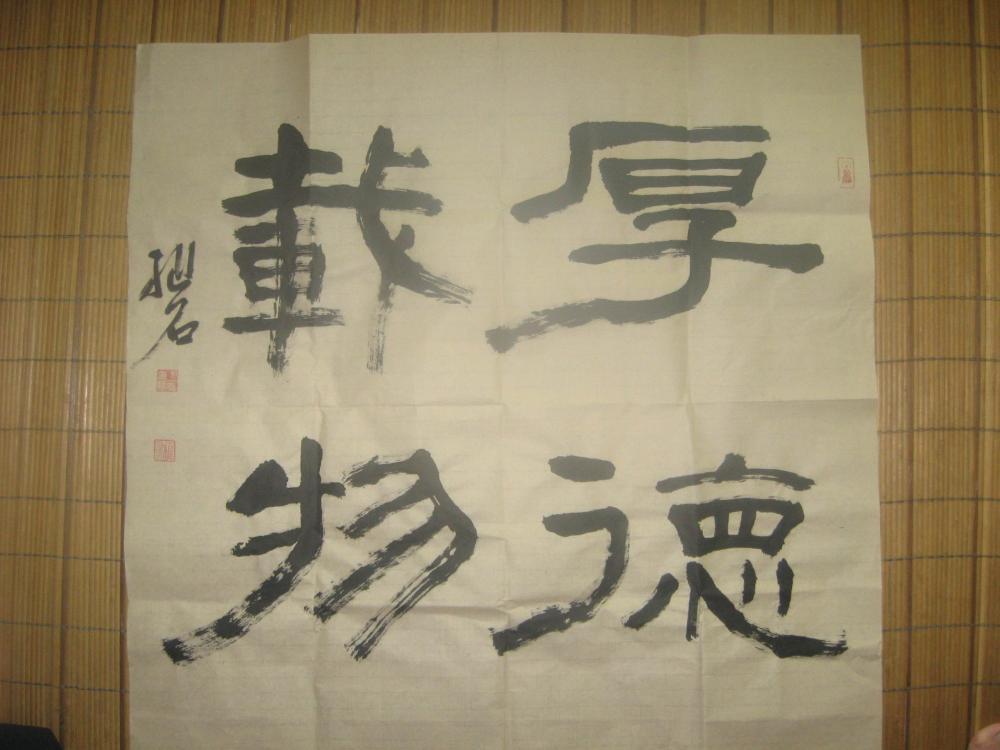 厚德
載物
拙石